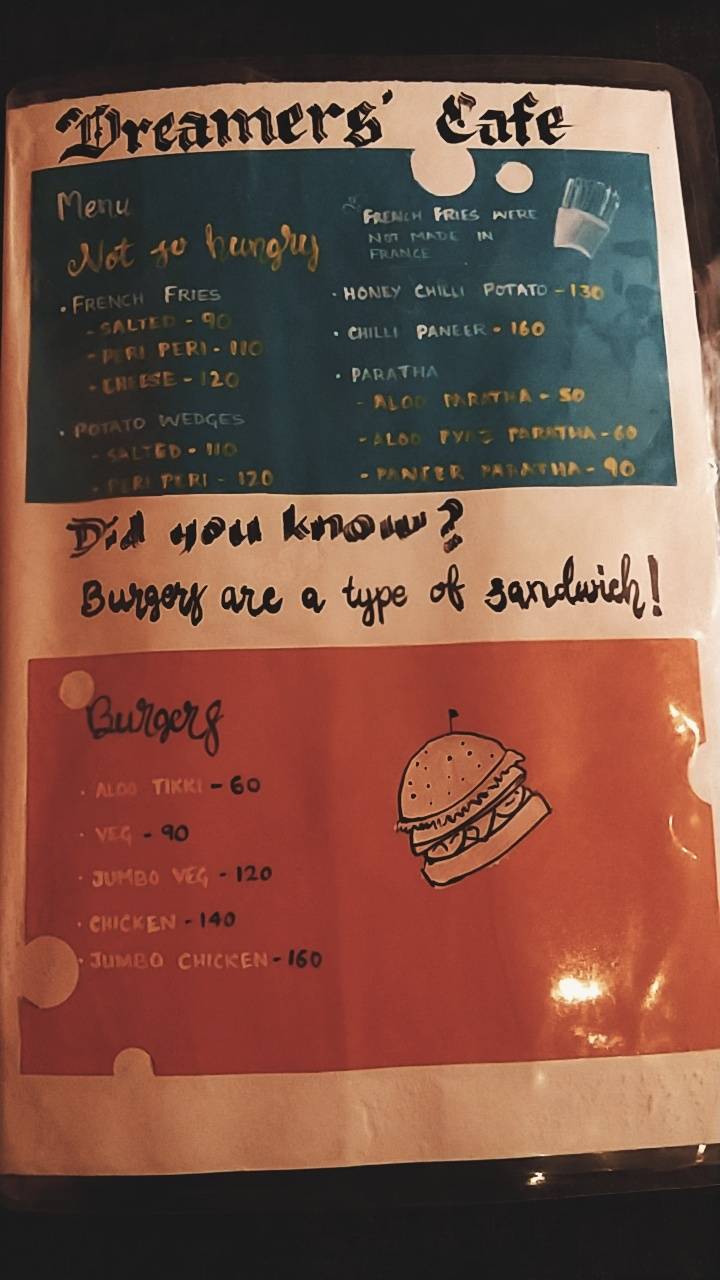 Dreamers' Cafe
Menu
Not so hungry
• FRENCH FRIES
- SALTED - 90
- PERI PERI - 110
- CHEESE - 120
• POTATO WEDGES
- SALTED - 110
- PERI PERI - 120
"FRENCH FRIES WERE
NOT MADE IN
FRANCE
• HONEY CHILLI POTATO - 130
• CHILLI PANEER - 160
• PARATHA
- ALOO PARATHA - 50
- ALOO PYAZ PARATHA - 60
- PANEER PARATHA - 90
Did you know?
Burgers are a type of sandwich!
Burgers
• ALOO TIKKI - 60
• VEG - 90
• JUMBO VEG - 120
• CHICKEN - 140
• JUMBO CHICKEN - 160